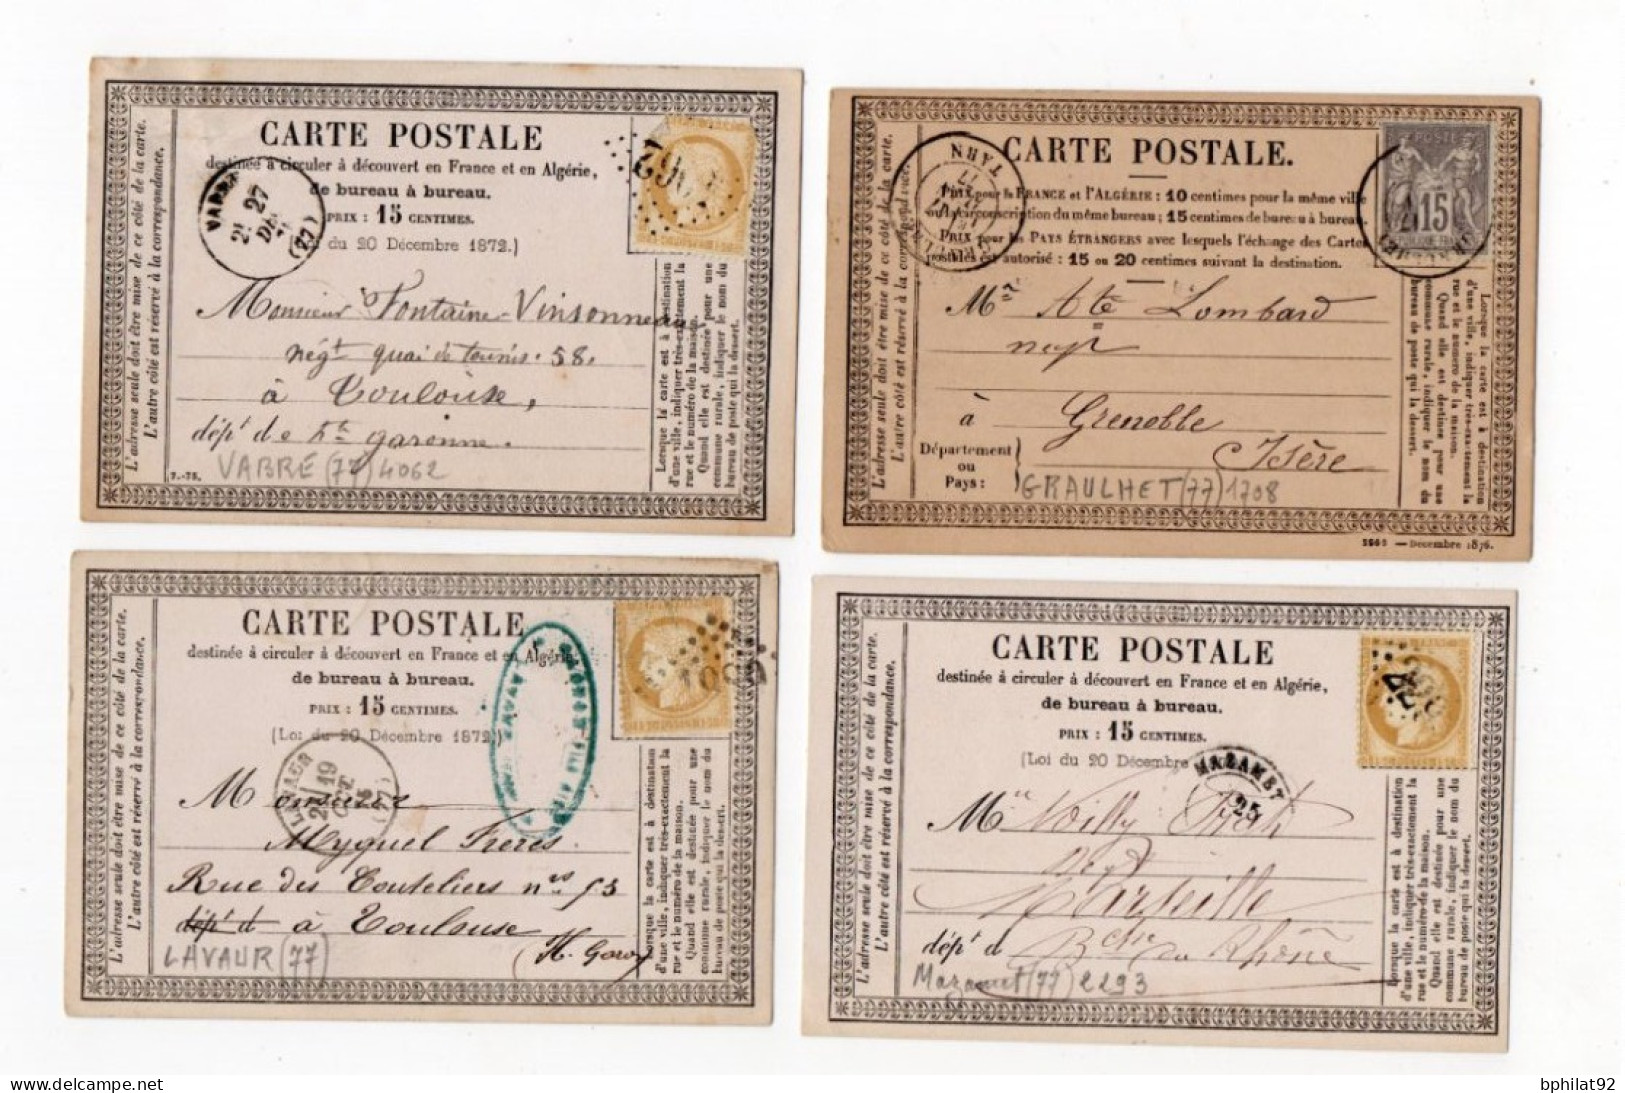 CARTE POSTALE
destinée à circuler à découvert en France et en Algérie,
de bureau à bureau.
PRIX : 15 CENTIMES.
du 20 Décembre 1872.)
VABRE
27
(77)
Monsieur Fontaine-Vinsonneau
négt quai de tounis. 58.
à Toulouse,
dépt de hte garonne.
VABRE (77) 4062
7.-75.
L'adresse seule doit être mise de ce côté de la carte.
L'autre côté est réservé à la correspondance.
Lorsque la carte est à destination
d'une ville, indiquer très-exactement la
rue et le numéro de la maison.
Quand elle est destinée pour une
commune rurale, indiquer le nom du
bureau de poste qui la dessert.
CARTE POSTALE.
PRIX pour la FRANCE et l'ALGÉRIE : 10 centimes pour la même ville
ou la circonscription du même bureau ; 15 centimes de bureau à bureau.
PRIX pour les PAYS ÉTRANGERS avec lesquels l'échange des Cartes
postales est autorisé : 15 ou 20 centimes suivant la destination.
TARN
POSTE
15
Mr Lombard
negt
à Grenoble
Isère
Département
ou
Pays :
GRAULHET (77) 1708
Décembre 1876.
L'adresse seule doit être mise de ce côté de la carte.
L'autre côté est réservé à la correspondance.
Lorsque la carte est à destination
d'une ville, indiquer très-exactement la
rue et le numéro de la maison.
Quand elle est destinée pour une
commune rurale, indiquer le nom du
bureau de poste qui la dessert.
CARTE POSTALE
destinée à circuler à découvert en France et en Algérie,
de bureau à bureau.
PRIX : 15 CENTIMES.
(Loi du 20 Décembre 1872.)
LAVAUR
19
OCT.
75
Monsieur
Myquel Freres.
Rue des Couteliers nos 53
dépt d à Toulouse
LAVAUR (77)
L'adresse seule doit être mise de ce côté de la carte.
L'autre côté est réservé à la correspondance.
Lorsque la carte est à destination
d'une ville, indiquer très-exactement la
rue et le numéro de la maison.
Quand elle est destinée pour une
commune rurale, indiquer le nom du
bureau de poste qui la dessert.
CARTE POSTALE
destinée à circuler à découvert en France et en Algérie,
de bureau à bureau.
PRIX : 15 CENTIMES.
(Loi du 20 Décembre
MAZAMET
25
Noilly Prat
Negt
Marseille
dépt d Bches du Rhône
Mazamet (77) 2293
L'adresse seule doit être mise de ce côté de la carte.
L'autre côté est réservé à la correspondance.
Lorsque la carte est à destination
d'une ville, indiquer très-exactement la
rue et le numéro de la maison.
Quand elle est destinée pour une
commune rurale, indiquer le nom du
bureau de poste qui la dessert.
delcampe.net
bphilat92